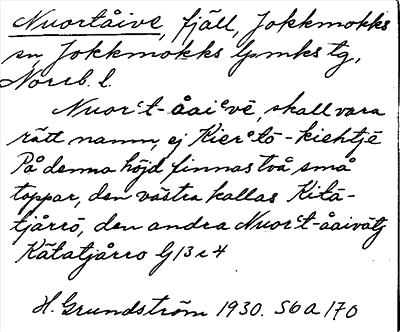 Nuortåive, fjäll, Jokkmokks
sn, Jokkmokks lpmks tg,
Norrb. l.
Nuorꞌt-åaiᵉvē, skall vara
rätt namn, ej Kierᵉtō-kiehtjē
På denna höjd finnas två små
toppar, den västra kallas Kitā-
tjårrō, den andra Nuorꞌt-åaivātj
Kātatjårro G13 c 4
H. Grundström 1930. S6a170